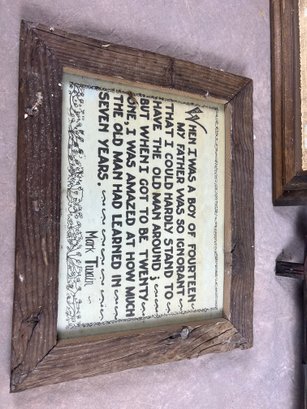 WHEN I WAS A BOY OF FOURTEEN
MY FATHER WAS SO IGNORANT
THAT I COULD HARDLY STAND TO
HAVE THE OLD MAN AROUND;
BUT WHEN I GOT TO BE TWENTY-
ONE, I WAS AMAZED AT HOW MUCH
THE OLD MAN HAD LEARNED IN
SEVEN YEARS.
Mark Twain